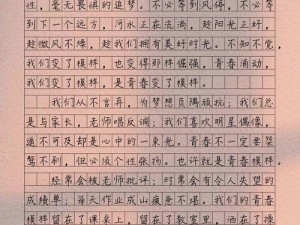 毫无畏惧的追梦。不必等到风停,不必等
到下一个远方,河水正在流淌,趁阳光正好,
趁微风不燥,趁我们拥有美好时光。不知不觉,
我们变了模样,也变得那样倔强。青春涌动,
我们变了模样,是青春变了模样。
我们从不言弃,为梦想负隅顽抗;我们总
是与家长、老师唱反调;我们喜欢明星偶像,
遥不可及却是心中的一束光。青春不一定要桀
骜不驯,但必须个性张扬,也许就是青春模样。
经常会被老师批评;时常会有令人失望的
成绩单;每天作业成山疲惫不堪。我们的青春
模样留在了课桌上,留在了教室里,洒在了操